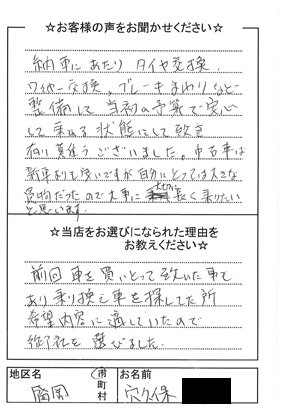 ☆お客様の声をお聞かせください☆
納車にあたり タイヤ交換.
ワイパー交換、ブレーキまわりなど
整備して 当初の予算で安心
して 乗れる 状態にして頂き
有り難うございました。中古車は
新車よりも安いですが自分にとっては大きな
買物だったので大事に 長く乗りたい
と思います.
☆当店をお選びになられた理由を
お教えください☆
前回 車を買いとって頂いた事で
あり乗り換え車を探してた所
希望内容に適していたので
御社を 選びました.
地区名
市
町
村
お名前
穴久保